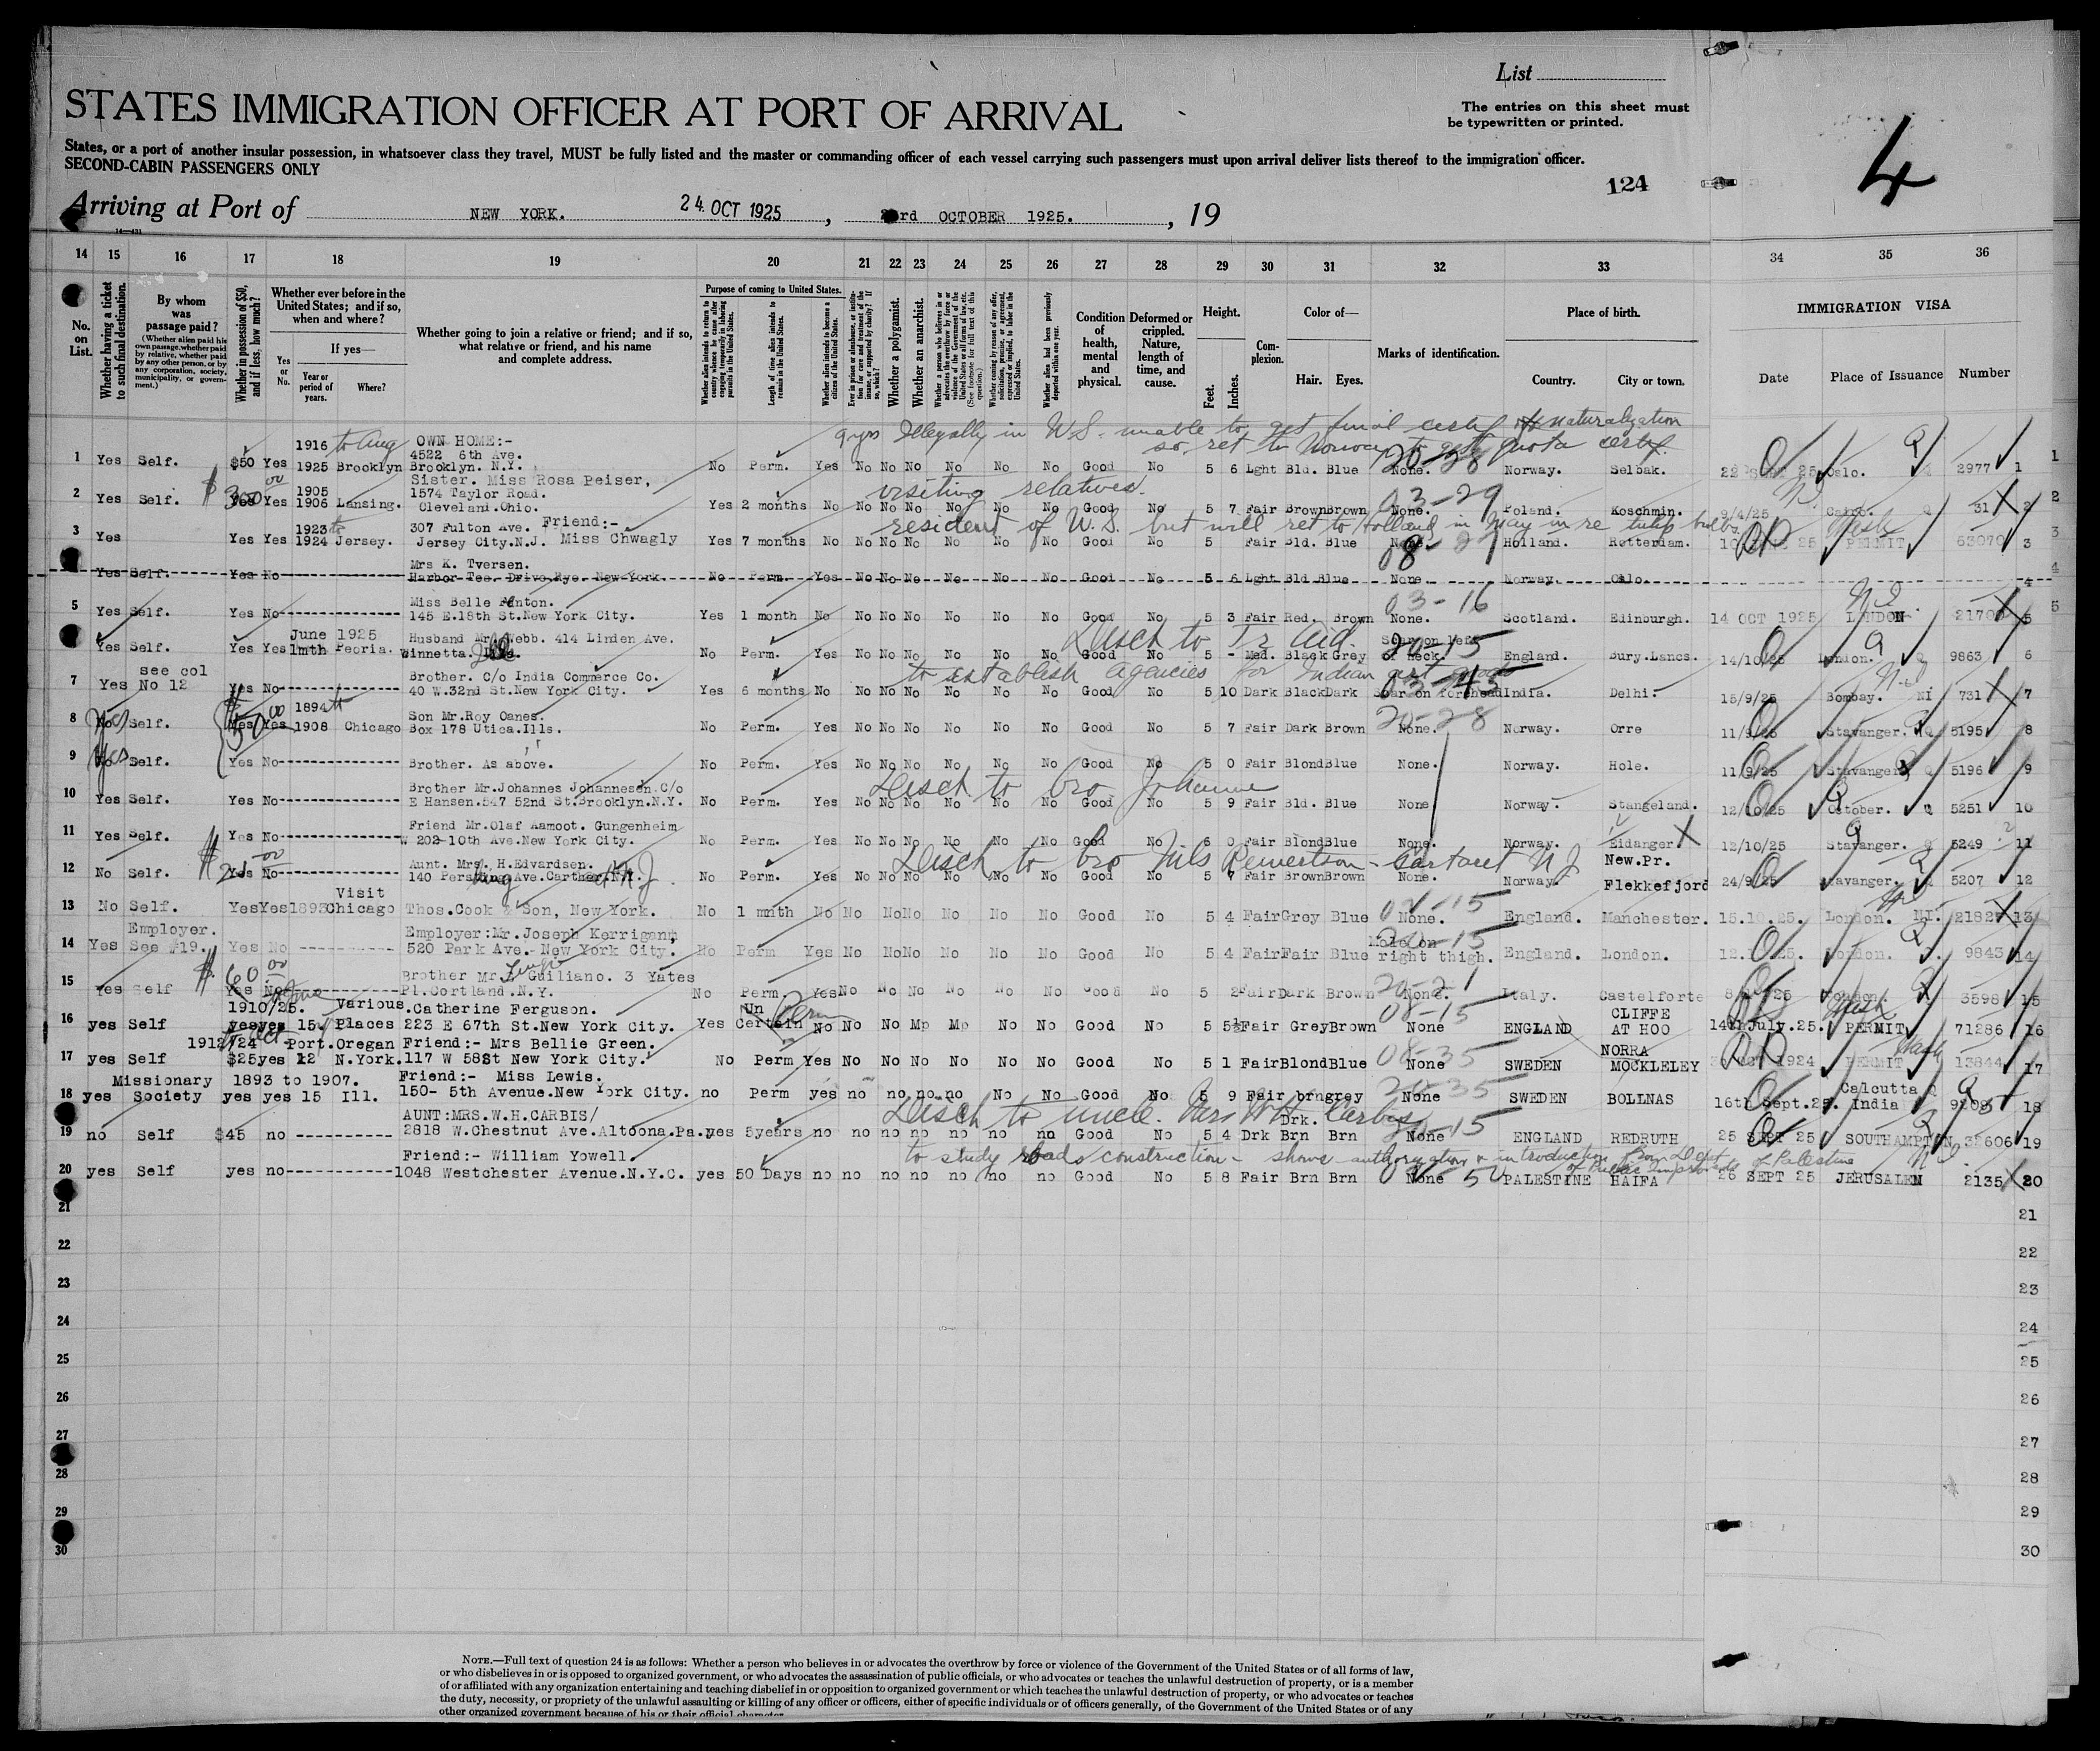 List
STATES IMMIGRATION OFFICER AT PORT OF ARRIVAL
The entries on this sheet must
be typewritten or printed.
States, or a port of another insular possession, in whatsoever class they travel, MUST be fully listed and the master or commanding officer of each vessel carrying such passengers must upon arrival deliver lists thereof to the immigration officer.
SECOND-CABIN PASSENGERS ONLY
124
4
Arriving at Port of NEW YORK. 24 OCT 1925, rd OCTOBER 1925., 19
14 15 16 17 18 19 20 21 22 23 24 25 26 27 28 29 30 31 32 33 34 35 36
No. on List.
Whether having a ticket to such final destination.
By whom was passage paid?
(Whether alien paid his own passage, whether paid by relative, whether paid by any other person, or by any corporation, society, municipality, or government.)
Whether in possession of $50, and if less, how much?
Whether ever before in the United States; and if so, when and where?
Yes or No.
If yes—
Year or period of years.
Where?
Whether going to join a relative or friend; and if so, what relative or friend, and his name and complete address.
Purpose of coming to United States.
Length of time alien intends to remain in the United States.
Whether alien intends to become a citizen of the United States.
Whether a polygamist.
Whether an anarchist.
Condition of health, mental and physical.
Deformed or crippled. Nature, length of time, and cause.
Height.
Feet.
Inches.
Complexion.
Color of—
Hair. Eyes.
Marks of identification.
Place of birth.
Country. City or town.
IMMIGRATION VISA
Date Place of Issuance Number
9 yrs Illegally in U.S. unable to get final certif of naturalization
so ret to Norway to get quota certif.
1916 to Aug OWN HOME:-
4522 6th Ave.
1 Yes Self. $50 Yes 1925 Brooklyn Brooklyn. N.Y. No Perm. Yes No No No No No No Good No 5 6 Lght Bld. Blue None. Norway. Selbak. 25 Oslo. 2977 1
Sister. Miss Rosa Peiser,
1905 1574 Taylor Road. visiting relatives. 03-29
2 Yes Self. $300 Yes 1906 Lansing. Cleveland.Ohio. Yes 2 months No No No No No No No Good No 5 7 Fair Brown Brown None. Poland. Koschmin. 9/4/25 Cairo. 31 2
resident of U.S. but will ret to Holland in May in re tulip bulbs
1923 to 307 Fulton Ave. Friend:-
3 Yes Yes Yes 1924 Jersey. Jersey City.N.J. Miss Chwagly Yes 7 months No No No No No No No Good No 5 Fair Bld. Blue Holland. Rotterdam. 25 PERMIT 63070 3
Mrs K. Tversen.
Yes Self. Yes No Harbor Tee. Drive Rye. New York. No Perm. Yes No No No No No No Good No 5 6 Lght Bld Blue None. Norway. Oslo. 4
Miss Belle 03-16
5 Yes Self. Yes No 145 E.18th St.New York City. Yes 1 month No No No No No No No Good No 5 3 Fair Red. Brown None. Scotland. Edinburgh. 14 OCT 1925 LONDON 5
June 1925 Husband Mr Webb. 414 Linden Ave.
Yes Self. Yes Yes 1mth Peoria. Winnetta. Ill No Perm. Yes No No No No No No Good No 5 - Med. Black Grey of neck England. Bury.Lancs. 14/10/25 London. Q 9863 6
to establish agencies for Indian art goods
see col Brother. C/o India Commerce Co.
7 Yes No 12 Yes No 40 W.32nd St.New York City. Yes 6 months No No No No No No No Good No 5 10 Dark Black Dark Scar on forehead India. Delhi. 15/9/25 Bombay. NI 731 7
1894 to Son Mr.Roy Oanes. 20-28
8 Yes Self. Yes Yes 1908 Chicago Box 178 Utica.Ills. No Perm. Yes No No No No No No Good No 5 7 Fair Dark Brown None. Norway. Orre 11/9/25 Stavanger. Q 5195 8
9 Yes Self. Yes No Brother. As above. No Perm. Yes No No No No No No Good No 5 0 Fair Blond Blue None. Norway. Hole. 11/9/25 Stavanger Q 5196 9
Disch to bro Johannes
Brother Mr.Johannes Johannesen.C/o
10 Yes Self. Yes No E Hansen.547 52nd St.Brooklyn.N.Y. No Perm. Yes No No No No No No Good No 5 9 Fair Bld. Blue None Norway. Stangeland. 12/10/25 October. Q 5251 10
Friend Mr.Olaf Aamoot. Gungenheim
11 Yes Self. Yes No W 202-10th Ave.New York City. No Perm. Yes No No No No No No Good No 6 0 Fair Blond Blue None. Norway. Eidanger 12/10/25 Stavanger. Q 5249 11
Disch to bro Nils - Carteret N J
Aunt. Mrs. H.Edvardsen. New.Pr.
12 No Self. Yes No 140 Pershing Ave. N.J. No Perm. Yes No No No No No No Good No 5 7 Fair Brown Brown None. Norway. Flekkefjord 24/9/25 Stavanger. Q 5207 12
Visit
13 No Self. Yes Yes 1893 Chicago Thos.Cook & Son, New York. No 1 mnth No No No No No No No Good No 5 4 Fair Grey Blue None. England. Manchester. 15.10.25. London. NI. 2182 13
Employer. Employer:Mr.Joseph Kerrigann, Mole on
14 Yes See #19. Yes No 520 Park Ave. New York City. No Perm Yes No No No No No No Good No 5 4 Fair Fair Blue right thigh. England. London. 12. 25. London. 9843 14
$60.00 Brother Mr. Guiliano. 3 Yates 20-21
15 Yes Self Yes No Pl.Cortland.N.Y. No Perm. Yes No No No No No No Good No 5 2 Fair Dark Brown None. Italy. Castelforte 25 London. 3598 15
1910/25. Various Catherine Ferguson. Un Perm 08-15 CLIFFE
16 yes Self yes yes 15 Places 223 E 67th St.New York City. Yes Certain No No No Mp Mp No No Good No 5 5½ Fair Grey Brown None ENGLAND AT HOO 14th July.25. PERMIT 71286 16
1912/24 Port.Oregan Friend:- Mrs Bellie Green. 08-35 NORRA
17 yes Self $25 yes 12 N.York. 117 W 58St New York City. No Perm Yes No No No No No No Good No 5 1 Fair Blond Blue None SWEDEN MOCKLELEY 1924 PERMIT 13844 17
Missionary 1893 to 1907. Friend:- Miss Lewis. 20-35 Calcutta Q
18 yes Society yes yes 15 Ill. 150- 5th Avenue.New York City. no Perm yes no no no no No No Good No 5 9 Fair brn grey None SWEDEN BOLLNAS 16th Sept.25. India 18
Disch to uncle. W H Carbis
AUNT:MRS.W.H.CARBIS/ Drk.
19 no Self $45 no 2818 W.Chestnut Ave.Altoona.Pa. yes 5years no no no no no no no Good No 5 4 Drk Brn Brn None ENGLAND REDRUTH 25 SEPT 25 SOUTHAMPTON 32606 19
to study roads construction - shows authorization & introduction from Dept
of Public Improvements of Palestine
Friend:- William Yowell.
20 yes Self yes no 1048 Westchester Avenue.N.Y.C. yes 50 Days no no no no no no no Good No 5 8 Fair Brn Brn None PALESTINE HAIFA 26 SEPT 25 JERUSALEM 2135 20
21 21
22 22
23 23
24 24
25 25
26 26
27 27
28 28
29 29
30 30
NOTE.—Full text of question 24 is as follows: Whether a person who believes in or advocates the overthrow by force or violence of the Government of the United States or of all forms of law,
or who disbelieves in or is opposed to organized government, or who advocates the assassination of public officials, or who advocates or teaches the unlawful destruction of property, or is a member
of or affiliated with any organization entertaining and teaching disbelief in or opposition to organized government or which teaches the unlawful destruction of property, or who advocates or teaches
the duty, necessity, or propriety of the unlawful assaulting or killing of any officer or officers, either of specific individuals or of officers generally, of the Government of the United States or of any
other organized government because of his or their official character.